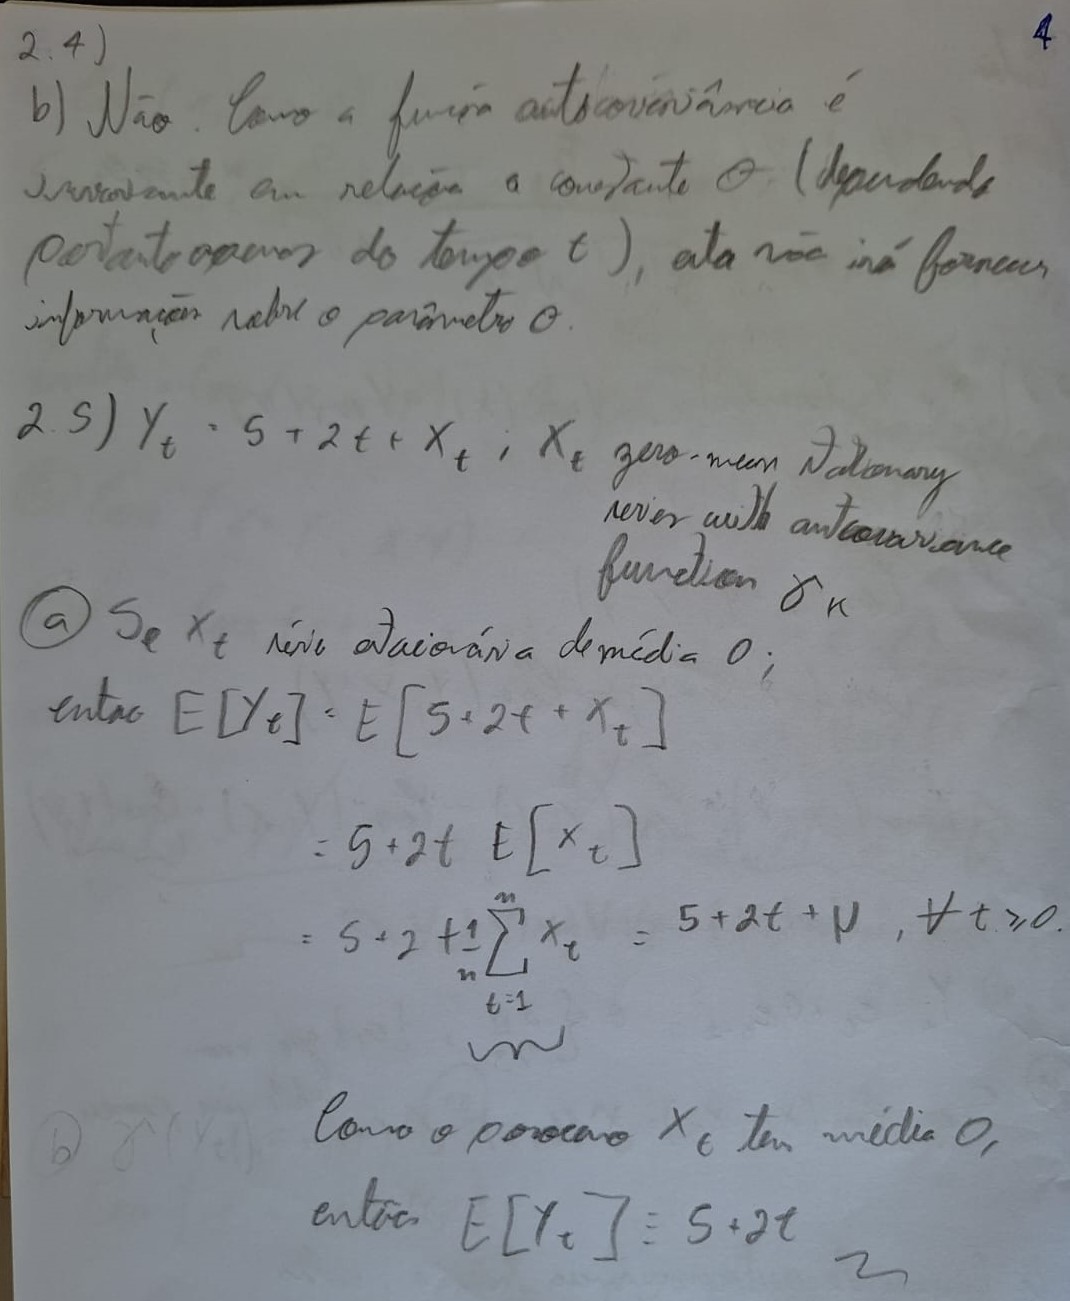 4
2.4)
b) Não. Como a função autocovariância é
invariante em relação a constante θ (dependendo
portanto apenas do tempo t), ela não irá fornecer
informação sobre o parâmetro θ.
2.5) Y_t = 5 + 2t + X_t ; X_t zero-mean stationary
series with autocovariance
function γ_k
(a) Se X_t série estacionária de média 0;
então E[Y_t] = E[5 + 2t + X_t]
= 5 + 2t E[X_t]
= 5 + 2 + 1/n ∑_{t=1}^{n} X_t = 5 + 2t + μ , ∀ t ≥ 0.
Como o processo X_t tem média 0,
então E[Y_t] ≡ 5 + 2t